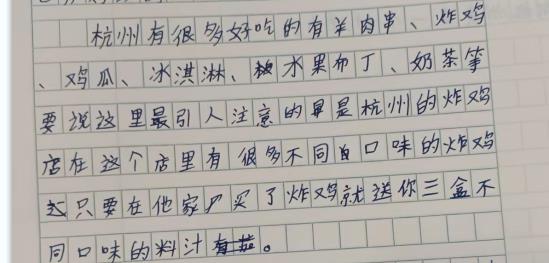 杭州有很多好吃的有羊肉串、炸鸡
、鸡爪、冰淇淋、水果布丁、奶茶等
要说这里最引人注意的是杭州的炸鸡
店在这个店里有很多不同口味的炸鸡
只要在他家买了炸鸡就送你三盒不
同口味的料汁。